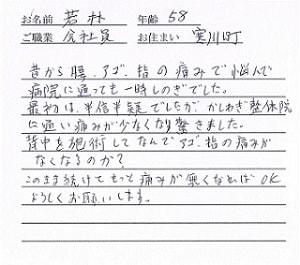 お名前 若林 年齢 58
ご職業 会社員 お住まい 実川町
昔から腰、アゴ、指の痛みで悩んで
病院に通っても一時しのぎでした。
最初は、半信半疑でしたが、かしわぎ整体院
に通い痛みが少なくなり驚きました。
背中を施術してなんでアゴ、指の痛みが
なくなるのか?
このまま続けてもっと痛みが無くなればOK
よろしくお願いします。